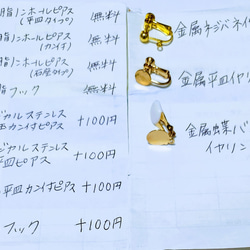 脂ノンホールピアス 無料
(平皿タイプ)
脂ノンホールピアス 無料
(カン付)
脂ノンホールピアス 無料
(石座タイプ)
脂フック 無料
ジカルステンレス
カン付ピアス +100円
ジカルステンレス
皿ピアス +100円
平皿カン付ピアス +100円
フック +100円
金属ネジバネイ
金属平皿イヤリン
金属蝶バ
イヤリン